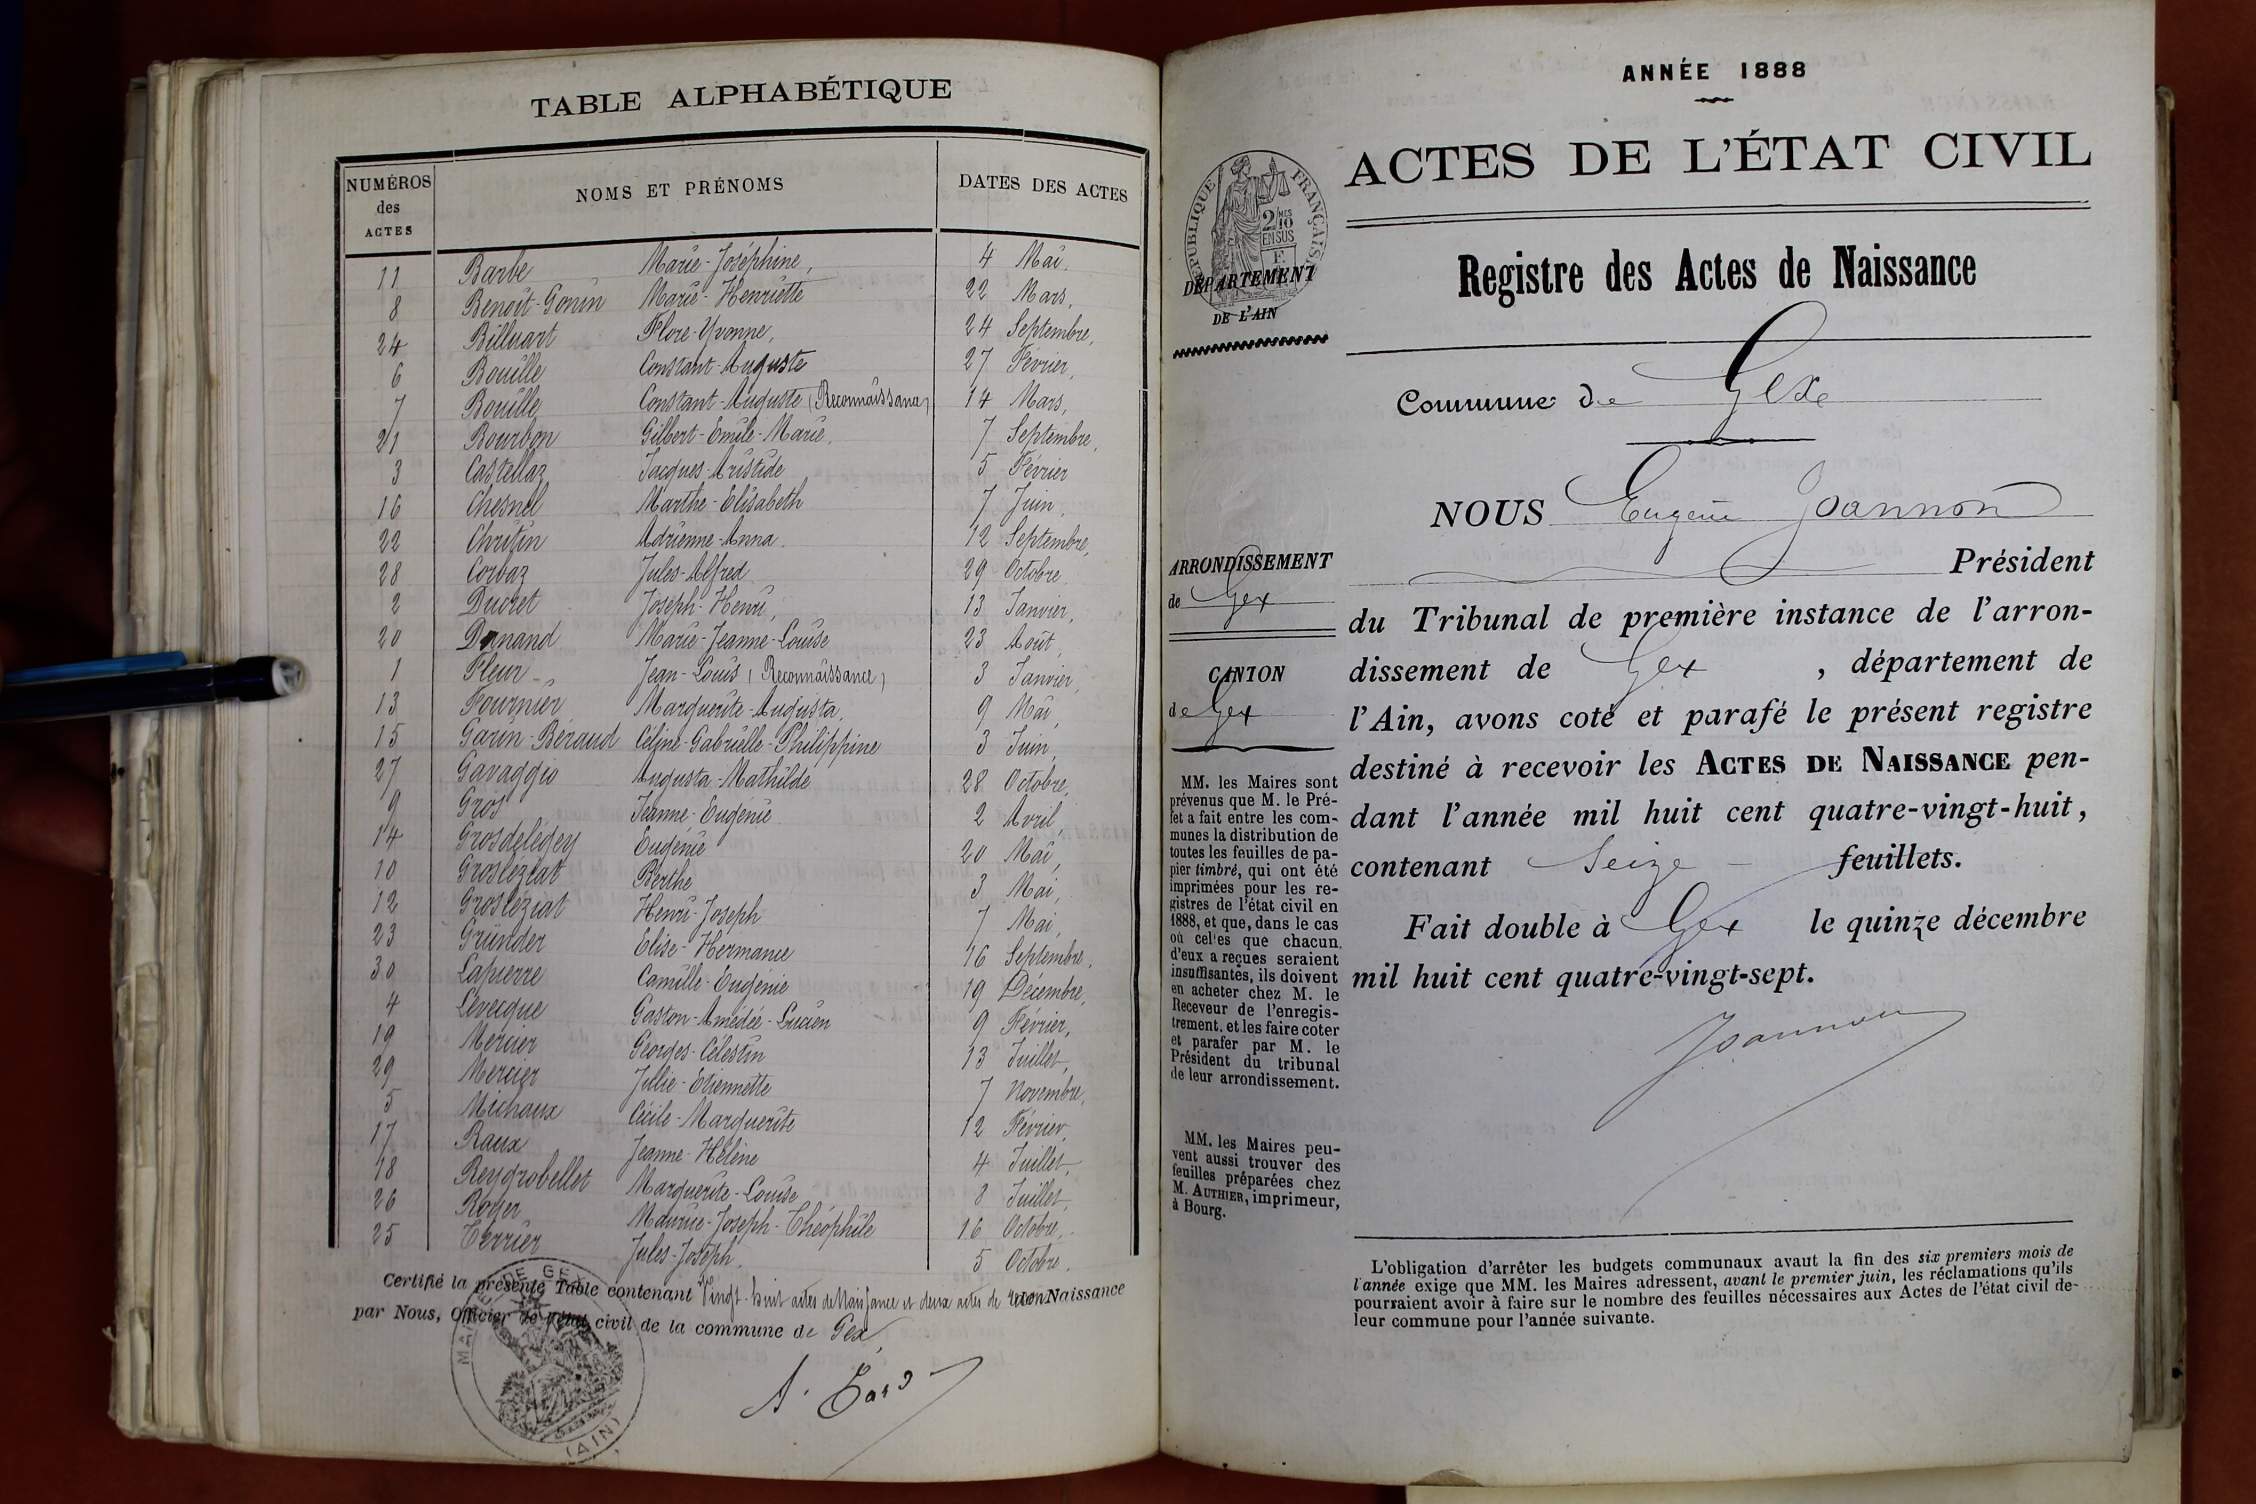 TABLE ALPHABÉTIQUE
NUMÉROS des ACTES NOMS ET PRÉNOMS DATES DES ACTES
11 Barbe Marie-Joséphine, 4 Mai.
8 Benoît-Gonin Marie-Henriette 22 Mars,
24 Billuart Flore-Yvonne, 24 Septembre,
6 Bouille Constant-Auguste 27 Février,
7 Bouille Constant-Auguste (Reconnaissance) 14 Mars,
21 Bourbon Gilbert-Emile-Marie, 7 Septembre,
3 Castellaz Jacques-Aristide 5 Février
16 Chesnel Marthe-Elisabeth 7 Juin,
22 Christin Adrienne-Anna. 12 Septembre,
28 Corbaz Jules-Alfred 29 Octobre
2 Ducret Joseph-Henri, 13 Janvier,
20 Marie-Jeanne-Louise 23 Août,
1 Fleur Jean-Louis (Reconnaissance) 3 Janvier,
13 Fournier Marguerite-Augusta, 9 Mai,
15 Garin-Béraud Céline-Gabrielle-Philippine 3 Juin,
27 Gavaggio Augusta-Mathilde 28 Octobre,
9 Gros Jeanne-Eugénie 2 Avril,
14 Grosdelégey Eugénie 20 Mai,
10 Grosléziat Berthe 3 Mai,
12 Grosléziat Henri-Joseph 7 Mai,
23 Gründer Elise-Hermance 16 Septembre,
30 Lapierre Camille-Eugénie 19 Décembre,
4 Levecque Gaston-Amédée-Lucien 9 Février,
19 Mercier Georges-Célestin 13 Juillet,
29 Mercier Julie-Etiennette 7 Novembre,
5 Michaux Cécile-Marguerite 12 Février,
17 Raux Jeanne-Hélène 4 Juillet,
18 Reygrobellet Marguerite-Louise 8 Juillet,
26 Roger Maurice-Joseph-Théophile 16 Octobre,
25 Terrier Jules-Joseph. 5 Octobre.
Certifié la présente Table contenant Vingt-huit actes de Naissance et deux actes de recon. Naissance
par Nous, Officier de l'état civil de la commune de Gex,
MAIRIE DE GEX
(AIN)
ANNÉE 1888
ACTES DE L'ÉTAT CIVIL
RÉPUBLIQUE FRANÇAISE
2/10 MES
EN SUS
DÉPARTEMENT
DE L'AIN
Registre des Actes de Naissance
Commune de Gex
NOUS Eugène Joannon
Président
du Tribunal de première instance de l'arron-
dissement de Gex, département de
l'Ain, avons coté et parafé le présent registre
destiné à recevoir les ACTES DE NAISSANCE pen-
dant l'année mil huit cent quatre-vingt-huit,
contenant Seize feuillets.
Fait double à Gex le quinze décembre
mil huit cent quatre-vingt-sept.
Joannon
ARRONDISSEMENT
de Gex
CANTON
de Gex
MM. les Maires sont
prévenus que M. le Pré-
fet a fait entre les com-
munes la distribution de
toutes les feuilles de pa-
pier timbré, qui ont été
imprimées pour les re-
gistres de l'état civil en
1888, et que, dans le cas
où celles que chacun
d'eux a reçues seraient
insuffisantes, ils doivent
en acheter chez M. le
Receveur de l'enregis-
trement, et les faire coter
et parafer par M. le
Président du tribunal
de leur arrondissement.
MM. les Maires peu-
vent aussi trouver des
feuilles préparées chez
M. AUTHIER, imprimeur,
à Bourg.
L'obligation d'arrêter les budgets communaux avant la fin des six premiers mois de
l'année exige que MM. les Maires adressent, avant le premier juin, les réclamations qu'ils
pourraient avoir à faire sur le nombre des feuilles nécessaires aux Actes de l'état civil de
leur commune pour l'année suivante.